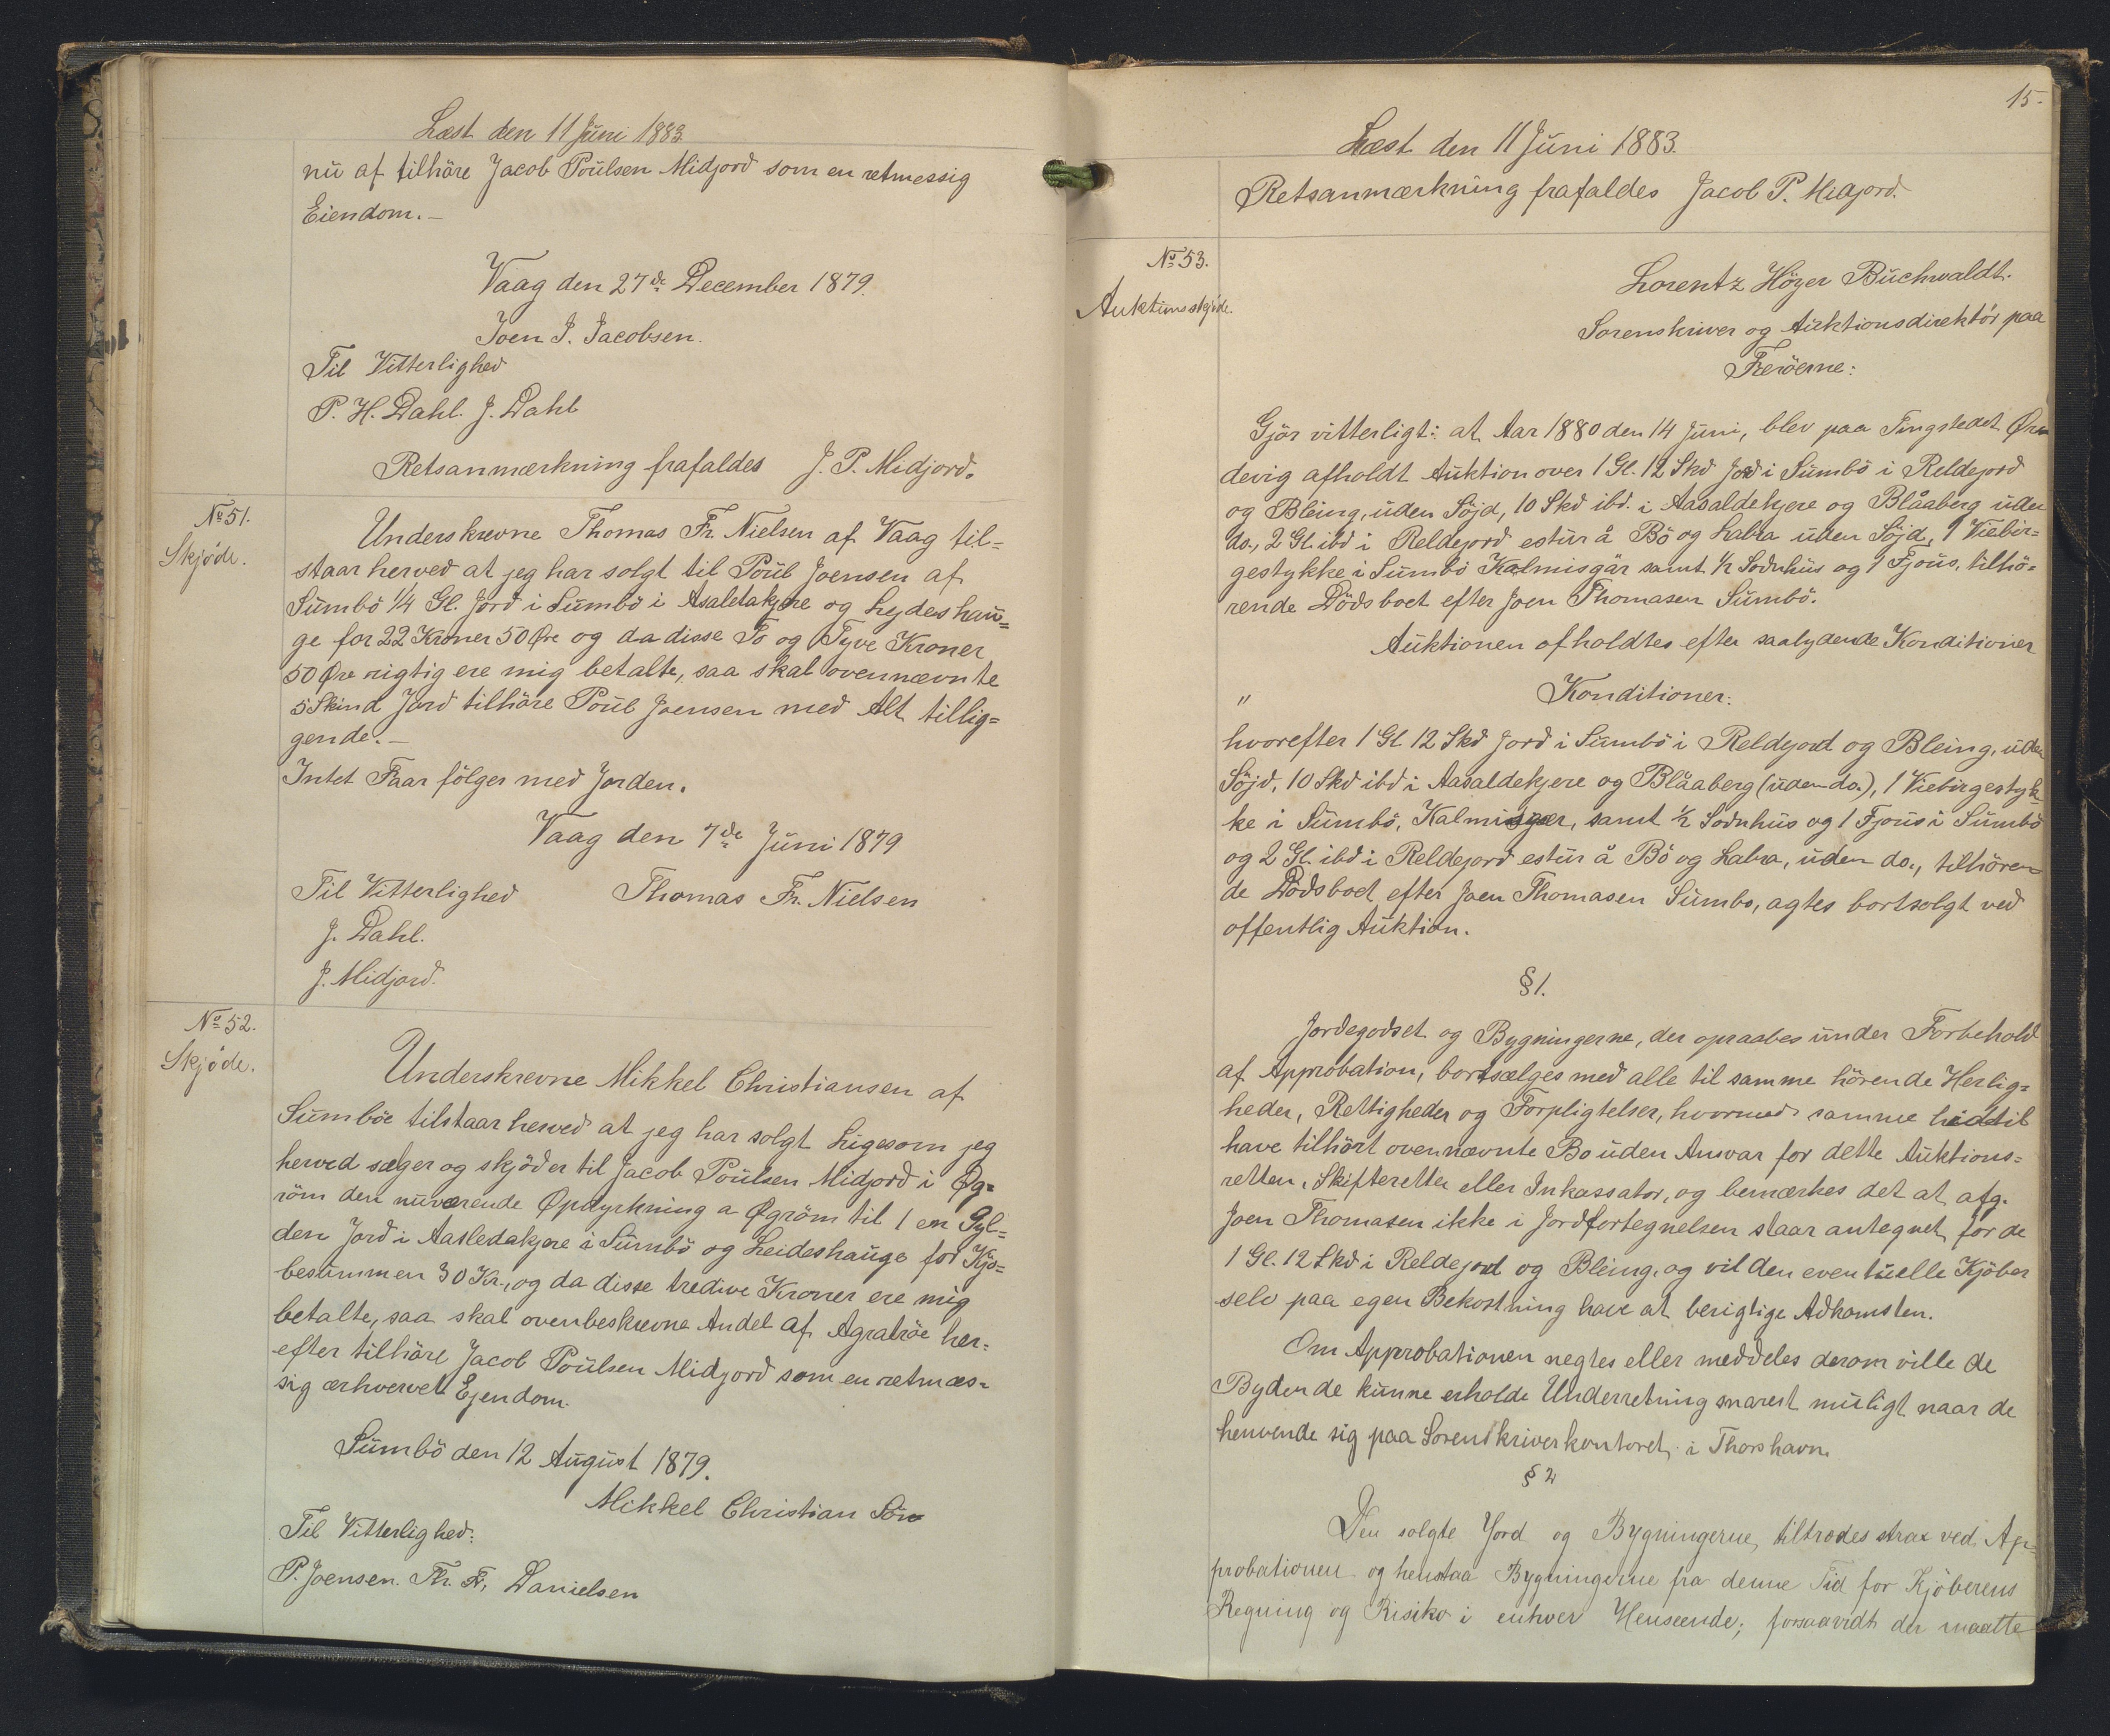 Læst den 11 Juni 1883
nu af tilhöre Jacob Poulsen Midjord som en retmessig
Eiendom.—
Vaag den 27de December 1879.
Joen J. Jacobsen.
Til Vitterlighed
P. H. Dahl. J. Dahl
Retsanmærkning frafaldes J. P. Midjord.
No 51.
Skjöde.
Underskrevne Thomas Fr. Nielsen af Vaag til=
staar herved at jeg har solgt til Poul Joensen af
Sumbö 1/4 Gl. Jord i Sumbö i Asaletakjere og Lejdeshau=
ge for 22 Kroner 50 Øre og da disse To og Tyve Kroner
50 Øre rigtig ere mig betalte, saa skal ovennævnte
5 Skind Jord tilhöre Poul Joensen med Alt tillig=
gende.—
Intet Faar fölger med Jorden.
Vaag den 7de Juni 1879
Til Vitterlighed Thomas Fr. Nielsen
J. Dahl.
J. Midjord.
No 52.
Skjöde.
Underskrevne Mikkel Christiansen af
Sumböe tilstaar herved at jeg har solgt Ligesom jeg
herved sælger og skjöder til Jacob Poulsen Midjord i Øg=
röm den nuværende Opdyrkning a Øgröm til 1 en Gyl=
den Jord i Aasledakjere i Sumbö og Leideshauge for Kjö=
besummen 30 Kr., og da disse tredive Kroner ere mig
betalte, saa skal ovenbeskrevne Andel af Agraröe her=
efter tilhöre Jacob Poulsen Midjord som en retmæs=
sig ærhvervet Ejendom.
Sumbö den 12 August 1879.
Mikkel Christian Sön
Til Vitterlighed:
P. Joensen. Th. F. Danielsen
15.
Læst den 11 Juni 1883.
Retsanmærkning frafaldes Jacob P. Midjord.
No 53.
Auktionsskjöde.
Lorentz Höyer Buchwaldt.
Sorenskriver og Auktionsdirektör paa
Færöerne:
Gjör vitterligt: at Aar 1880 den 14 Juni, blev paa Tingstedet Øren
devig afholdt Auktion over 1 Gl. 12 Skd Jord i Sumbö i Reldejord
og Bleing, uden Söjd, 10 Skd ibd. i Aasaldekjere og Blåaberg uden
do., 2 Gl. ibd i Reldejord estur å Bö og Labra uden Söjd, 1 Viebir=
gestykke i Sumbö Kalmisgär samt 1/2 Sodnhus og 1 Fjous, tilhö=
rende Dödsboet efter Joen Thomasen Sumbö.
Auktionen afholdtes efter saalydende Konditioner
" Konditioner:
hvorefter 1 Gl 12 Skd Jord i Sumbö i Reldejord og Bleing, uden
Söjd, 10 Skd ibd i Aasaldekjere og Blåaberg (uden do.), 1 Viebirgestyk=
ke i Sumbö, Kalmisgær, samt 1/2 Sodnhus og 1 Fjous i Sumbö
og 2 Gl. ibd i Reldejord estur å Bö og Labra, uden do., tilhören=
de Dödsboet efter Joen Thomasen Sumbo, agtes bortsolgt ved
offentlig Auktion.
§ 1.
Jordegodset og Bygningerne, der opraabes under Forbehold
af Approbation, bortsælges med alle til samme hörende Herlig=
heder, Rettigheder og Forpligtelser, hvormed samme hidtil
have tilhört ovennævnte Bo uden Ansvar for dette Auktions=
retten, Skifteretten eller Inkassator, og bemærkes det at afg.
Joen Thomasen ikke i Jordfortegnelsen staar antegnet for de
1 Gl. 12 Skd i Reldejord og Bleing, og vil den eventuelle Kjöber
selv paa egen Bekostning have at berigtige Adkomsten.
Om Approbationen negtes eller meddeles derom ville de
Bydende kunne erholde Underretning snarest muligt naar de
henvende sig paa Sorenskriverkontoret i Thorshavn.
§ 2
Den solgte Jord og Bygningerne, tiltrædes strax ved Ap=
probationen og henstaa Bygningerne fra denne Tid for Kjöberens
Regning og Risiko i enhver Henseende; forsaavidt der maatte